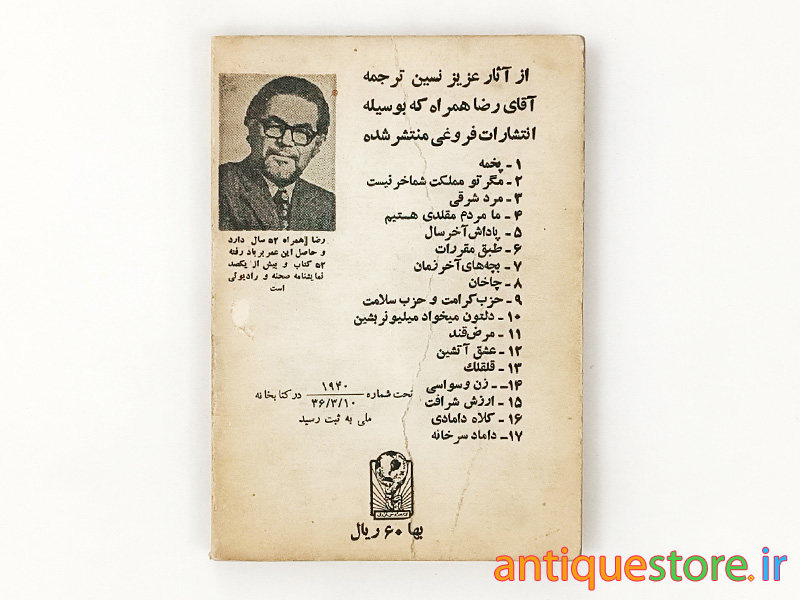 از آثار عزیز نسین ترجمه
آقای رضا همراه که بوسیله
انتشارات فروغی منتشر شده
۱- پخمه
۲- مگر تو مملکت شما خر نیست
۳- مرد شرقی
۴- ما مردم مقلدی هستیم
۵- پاداش آخر سال
۶- طبق مقررات
۷- بچه‌های آخر زمان
۸- چاخان
۹- حزب کرامت و حزب سلامت
۱۰- دلتون میخواد میلیونر بشین
۱۱- مرض قند
۱۲- عشق آتشین
۱۳- قلقلك
۱۴- زن وسواسی
۱۵- ارزش شرافت
۱۶- کلاه دامادی
۱۷- داماد سرخانه
رضا همراه ۵۲ سال دارد
و حاصل این عمر بر باد رفته
۵۲ کتاب و بیش از یکصد
نمایشنامه صحنه و رادیوئی
است
تحت شماره ۱۹۴۰ / ۳۶/۳/۱۰ در کتابخانه
ملی به ثبت رسید
بها ۶۰ ریال
antiquestore.ir